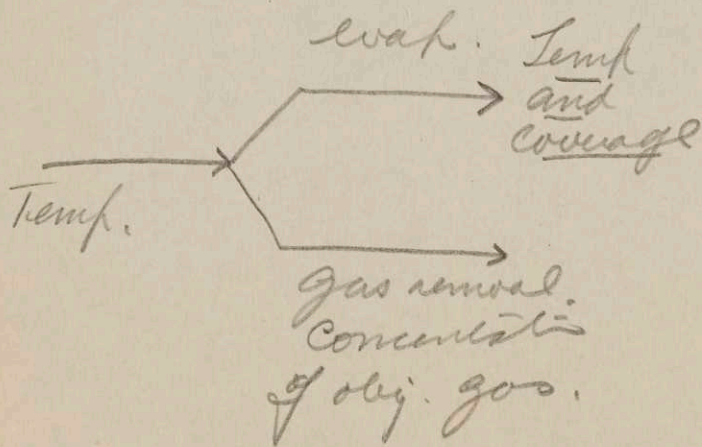 evap.
Temp
and
coverage
Temp.
gas removal.
Concentratio
of obj. gas.